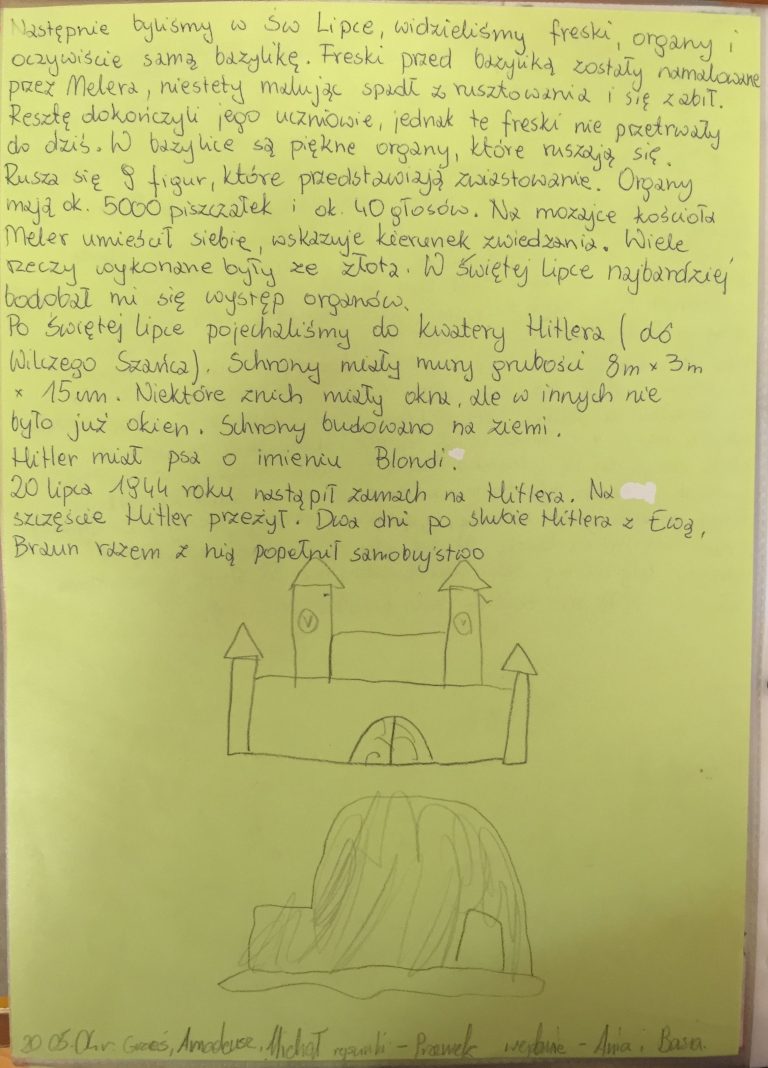 Następnie byliśmy w Św Lipce, widzieliśmy freski, organy i
oczywiście samą bazylikę. Freski przed bazyliką zostały namalowane
przez Melera, niestety malując spadł z rusztowania i się zabił.
Resztę dokończyli jego uczniowie, jednak te freski nie przetrwały
do dziś. W bazylice są piękne organy, które ruszają się.
Rusza się 9 figur, które przedstawiają zwiastowanie. Organy
mają ok. 5000 piszczałek i ok. 40 głosów. Na mozajce kościoła
Meler umieścił siebie, wskazuje kierunek zwiedzania. Wiele
rzeczy wykonane były ze złota. W Świętej Lipce najbardziej
bodobał mi się występ organów.
Po Świętej Lipce pojechaliśmy do kwatery Hitlera (do
Wilczego Szańca). Schrony miały mury grubości 8m × 3m
× 15cm. Niektóre znich miały okna, ale w innych nie
było już okien. Schrony budowano na ziemi.
Hitler miał psa o imieniu Blondi.
20 lipca 1944 roku nastąpił zamach na Hitlera. Na
szczęście Hitler przeżył. Dwa dni po ślubie Hitlera z Ewą,
Braun razem z nią popełnił samobujstwo
V V
20 05. Grześ, Amadeusz, Michał rysunki - Przemek - Ania i Basia.